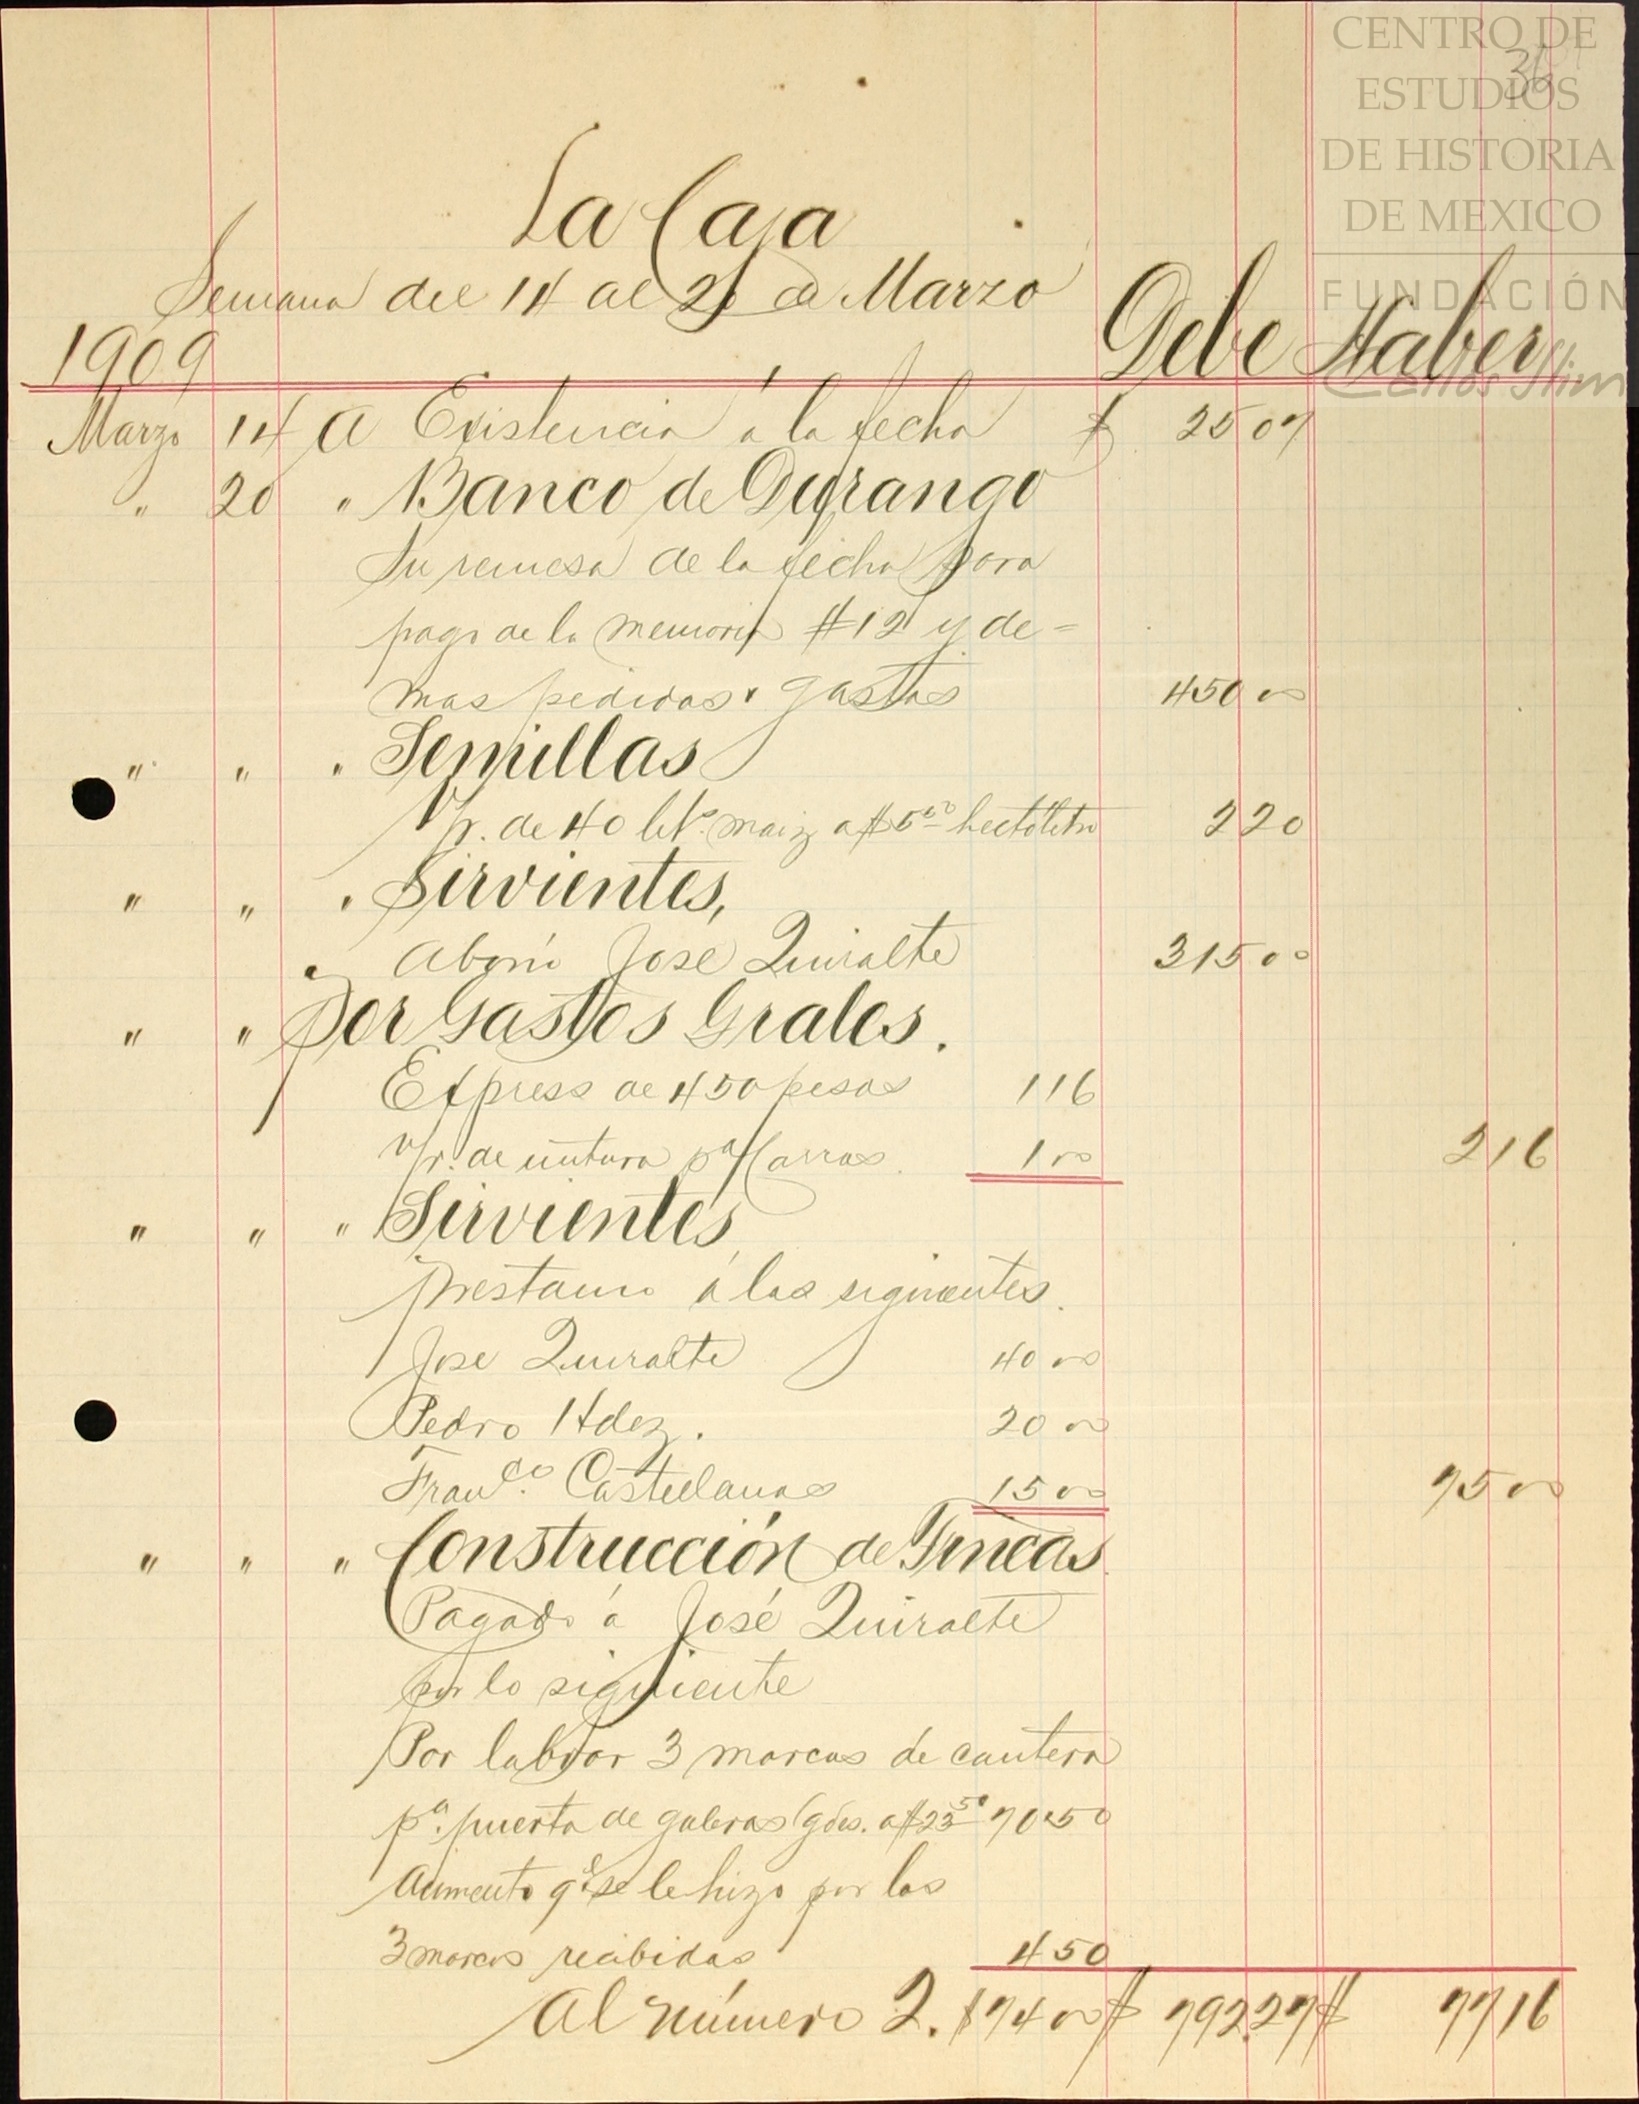 CENTRO DE
ESTUDIOS
DE HISTORIA
DE MEXICO
FUNDACIÓN
Carlos Slim
36
La Caja
Semana del 14 al 20 de Marzo
1909 Debe Haber
Marzo 14 A Existencia á la fecha $ 25 07
" 20 " Banco de Durango
Su remesa de la fecha para
pago de la memoria #12 y de=
mas pedidos y gastos 450 00
" " " Semillas
V/r. de 40 lits. maiz a $5 50 hectólitro 2 20
" " " Sirvientes,
Abonó José Quiralte 315 00
" " Por Gastos Grales.
Express de 450 pesos 1 16
V/r. de untura pa Carros. 1 00 2 16
" " " Sirvientes
Prestamo á los siguientes.
Jose Quiralte 40 00
Pedro Hdez. 20 00
Franco. Castellanos 15 00 75 00
" " " Construcción de Fincas
Pagado á José Quiralte
por lo siguiente
Por labrar 3 marcos de cantera
pa. puerta de galeras gdes. a $23 50 70.50
Aumento qe. se le hizo por los
3 marcos recibidos 4 50
Al número 2. $74 00 $ 792.27 $ 77 16